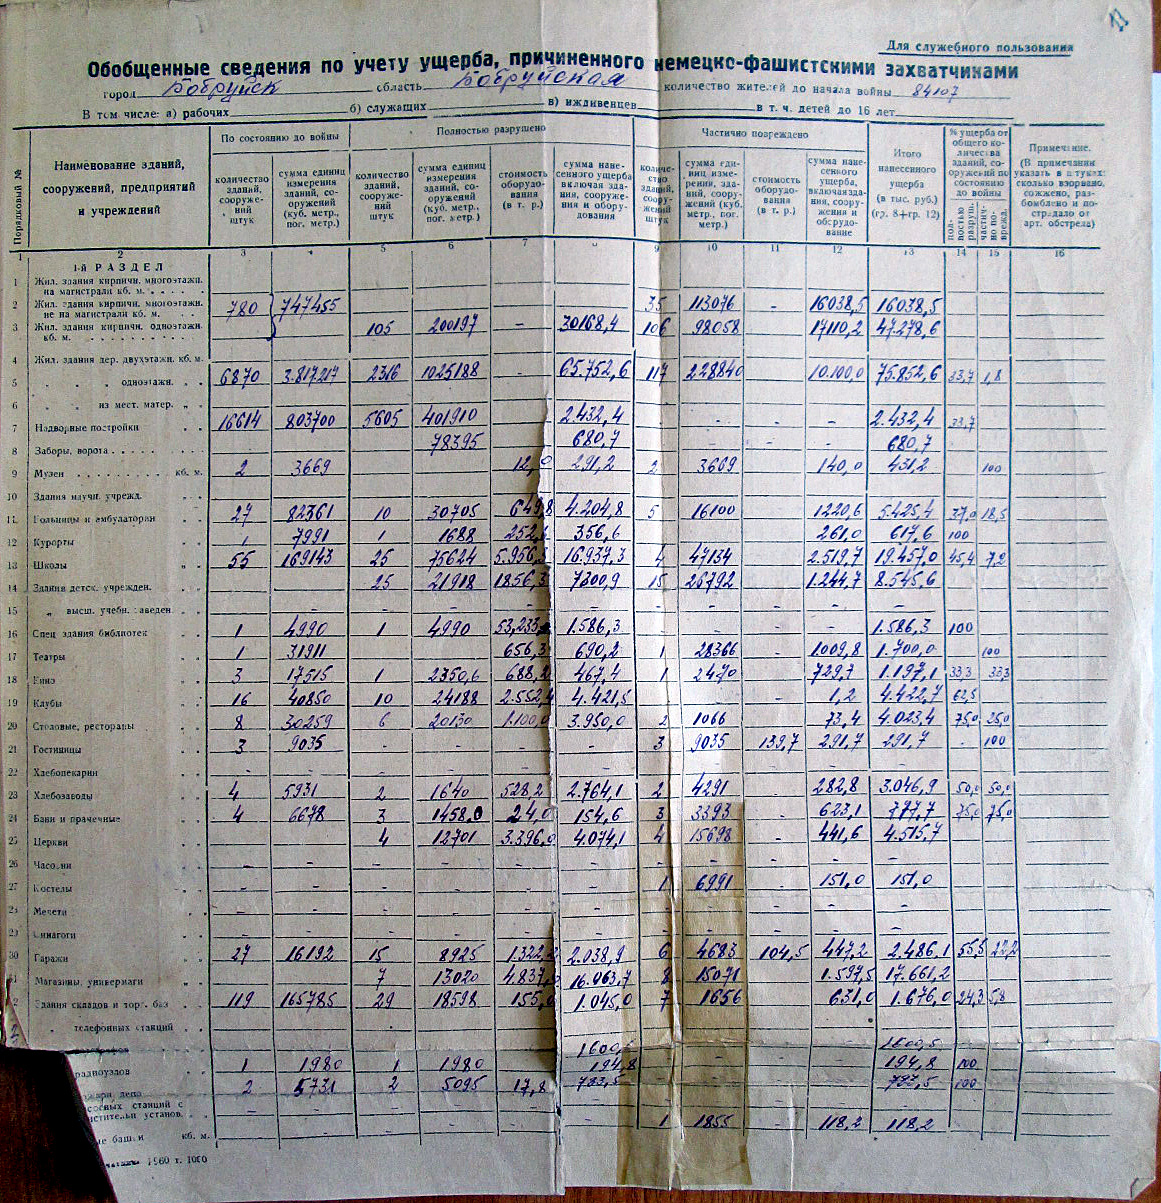 11
Для служебного пользования
Обобщенные сведения по учету ущерба, причиненного немецко-фашистскими захватчиками
город Бобруйск область Бобруйская количество жителей до начала войны 84107
В том числе: а) рабочих б) служащих в) иждивенцев в т. ч. детей до 16 лет
Порядковый № Наименование зданий, сооружений, предприятий и учреждений
По состоянию до войны Полностью разрушено Частично повреждено
количество зданий, сооружений штук
сумма единиц измерения зданий, сооружений (куб. метр., пог. метр.)
количество зданий, сооружений штук
сумма единиц измерения зданий, сооружений (куб. метр., пог. метр.)
стоимость оборудования (в т. р.)
сумма нанесенного ущерба включая здания, сооружения и оборудования
количество зданий, сооружений штук
сумма единиц измерения, зданий, сооруж. (куб. метр., пог. метр.)
стоимость оборудования (в т. р.)
сумма нанесенного ущерба, включая здания, сооружения и оборудование
Итого нанесенного ущерба (в тыс. руб.) (гр. 8+гр. 12)
% ущерба от общего количества зданий, сооружений по состоянию до войны
полностью разруш. частично поврежд.
Примечание. (В примечании указать в штуках: сколько взорвано, сожжено, разбомблено и пострадало от арт. обстрела)
1 2 3 4 5 6 7 8 9 10 11 12 13 14 15 16
1-й РАЗДЕЛ
1 Жил. здания кирпичн. многоэтажн. на магистрали кб. м.
2 Жил. здания кирпичн. многоэтажн. не на магистрали кб. м. 780 747455 35 113076 - 16038,5 16038,5
3 Жил. здания кирпичн. одноэтажн. кб. м. 105 200197 - 30168,4 106 98058 17110,2 47.278,6
4 Жил. здания дер. двухэтажн. кб. м.
5 " " " одноэтажн. " 6870 3.817217 2316 1025188 - 65.752,6 117 228840 10.100,0 75.852,6 33,7 1,8
6 " " из мест. матер. "
7 Надворные постройки 16614 803700 5605 401910 2.432,4 - - - - 2.432,4 33,7
8 Заборы, ворота 78395 680,7 - - - - 680,7
9 Музеи кб. м. 2 3669 12,0 291,2 2 3669 140,0 431,2 100
10 Здания научн. учрежд.
11 Больницы и амбулатории 27 82361 10 30705 649,8 4.204,8 5 16100 1220,6 5.425,4 37,0 18,5
12 Курорты 1 7991 1 1688 356,6 261,0 617,6 100
13 Школы " 55 169143 25 75624 5.956,3 16.937,3 4 47134 2.519,7 19.457,0 45,4 7,2
14 Здания детск. учрежден. 25 21918 1856,3 7300,9 15 26792 - 1.244,7 8.545,6
15 " высш. учебн. заведен - - - - - - - - -
16 Спец здания библиотек 1 4990 1 4990 1.586,3 - - - - 1.586,3 100
17 Театры 1 31911 656,3 690,2 1 28366 - 1009,8 1.700,0 100
18 Кино 3 17515 1 2350,6 467,4 1 2470 729,7 1.197,1 33,3 33,3
19 Клубы 16 40850 10 24188 2.552,4 4.421,5 - - - 1,2 4.422,7 62,5
20 Столовые, рестораны 8 30259 6 20130 1.100,0 3.950,0 2 1066 73,4 4.023,4 75,0 25,0
21 Гостиницы 3 9035 - - - - 3 9035 139,7 291,7 291,7 - 100
22 Хлебопекарни - - - - - - - - - - -
23 Хлебозаводы 4 5931 2 1640 528,2 2.764,1 2 4291 282,8 3.046,9 50,0 50,0
24 Бани и прачечные 4 6678 3 1458,0 24,0 154,6 3 3393 - 623,1 777,7 75,0 75,0
25 Церкви 4 12701 3.396,0 4.074,1 4 15698 - 441,6 4.515,7
26 Часовни - - - - - - - - - -
27 Костелы - - - - - - 1 6991 - 151,0 151,0
28 Мечети - - - - - - - - - -
29 Синагоги - - - - - - - - - -
30 Гаражи 27 16192 15 8925 2.038,9 6 4683 104,5 447,2 2.486,1 55,5 22,2
31 Магазины, универмаги 7 13020 16.063,7 8 15071 1.597,5 17.661,2
32 Здания складов и торг. баз 119 165785 29 18598 155,0 1.045,0 7 1656 631,0 1.676,0 24,3 5,8
" телефонных станций - - - - - - - - -
1600,5
радиоузлов 1 1980 1 1980 194,8 - - - - 194,8 100
депо 2 5731 2 5095 17,8 783,5 - - - - 783,5 100
станций с установ. - - - - - - - - -
кб. м. - - - - - 1 1855 - 118,2 118,2
1960 г. 1000